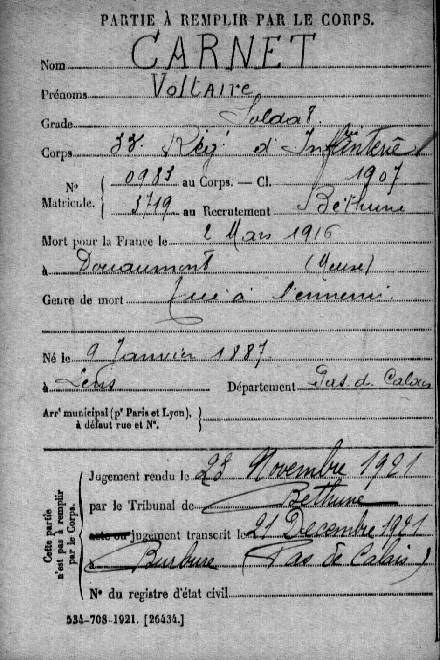 PARTIE À REMPLIR PAR LE CORPS.
Nom CARNET
Prénoms VOLTAIRE
Grade Soldat
Corps 33e Régt d'Infanterie
N° Matricule. { 0983 au Corps. — Cl. 1907
3719 au Recrutement Béthune
Mort pour la France le 2 Mars 1916
à Douaumont (Meuse)
Genre de mort Tué à l'ennemi
Né le 9 Janvier 1887
à Lens Département Pas d. Calais
Arrt municipal (pr Paris et Lyon), à défaut rue et N°.
Cette partie n'est pas à remplir par le Corps.
Jugement rendu le 23 Novembre 1921
par le Tribunal de Béthune
acte ou jugement transcrit le 21 Decembre 1921
à Burbure (Pas de Calais)
N° du registre d'état civil
534-708-1921. [26434.]